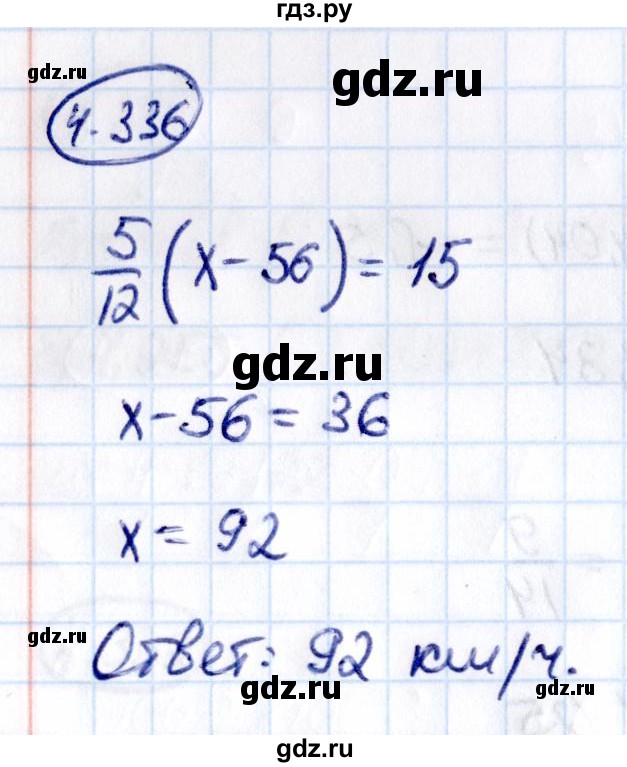 гдз.ру
gdz.ru
gdz.ru
4.336
5/12 (x - 56) = 15
gdz.ru
x - 56 = 36
x = 92
gdz.ru
gdz.ru
Ответ: 92 км/ч.
gdz.ru
gdz.ru
gdz.ru